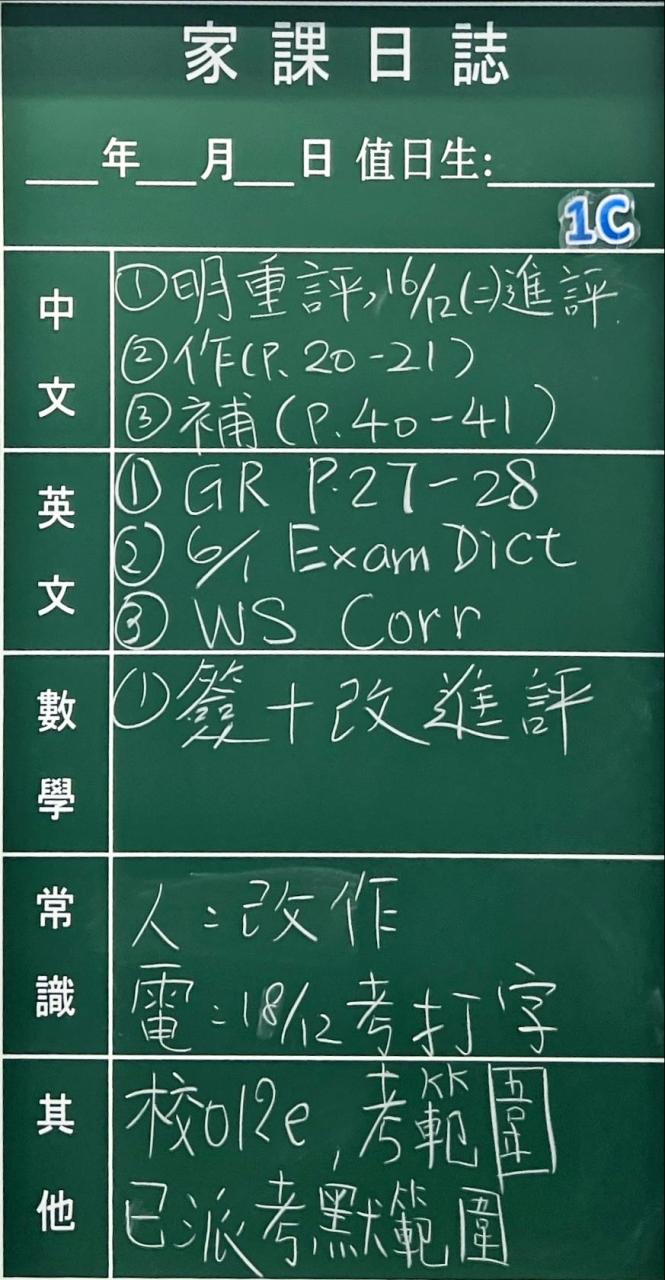 家課日誌
___年___月___日 值日生:________
1C
中文
①明重評,16/12(二)進評
②作(P. 20-21)
③補(P.40-41)
英文
① GR P.27-28
② 6/1 Exam Dict
③ WS Corr
數學
①簽+改進評
常識
人:改作
電:18/12考打字
其他
校012e,考範圍
已派考默範圍